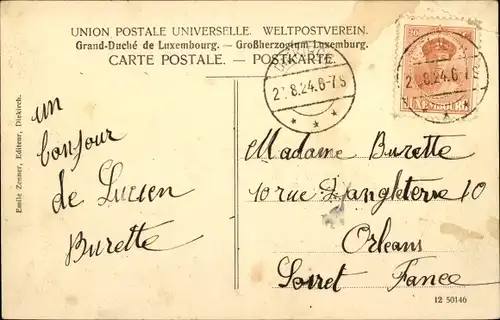 UNION POSTALE UNIVERSELLE. WELTPOSTVEREIN.
Grand-Duché de Luxembourg. — Großherzogtum Luxemburg.
CARTE POSTALE. — POSTKARTE.
8.24.6-7S
8.24.6-7
LUXEMBOURG
un
bonjour
de Lucien
Burette
Emile Zenner, Editeur, Diekirch.
Madame Burette
10 rue D'angleterre 10
Orleans
Loiret France
12 50146